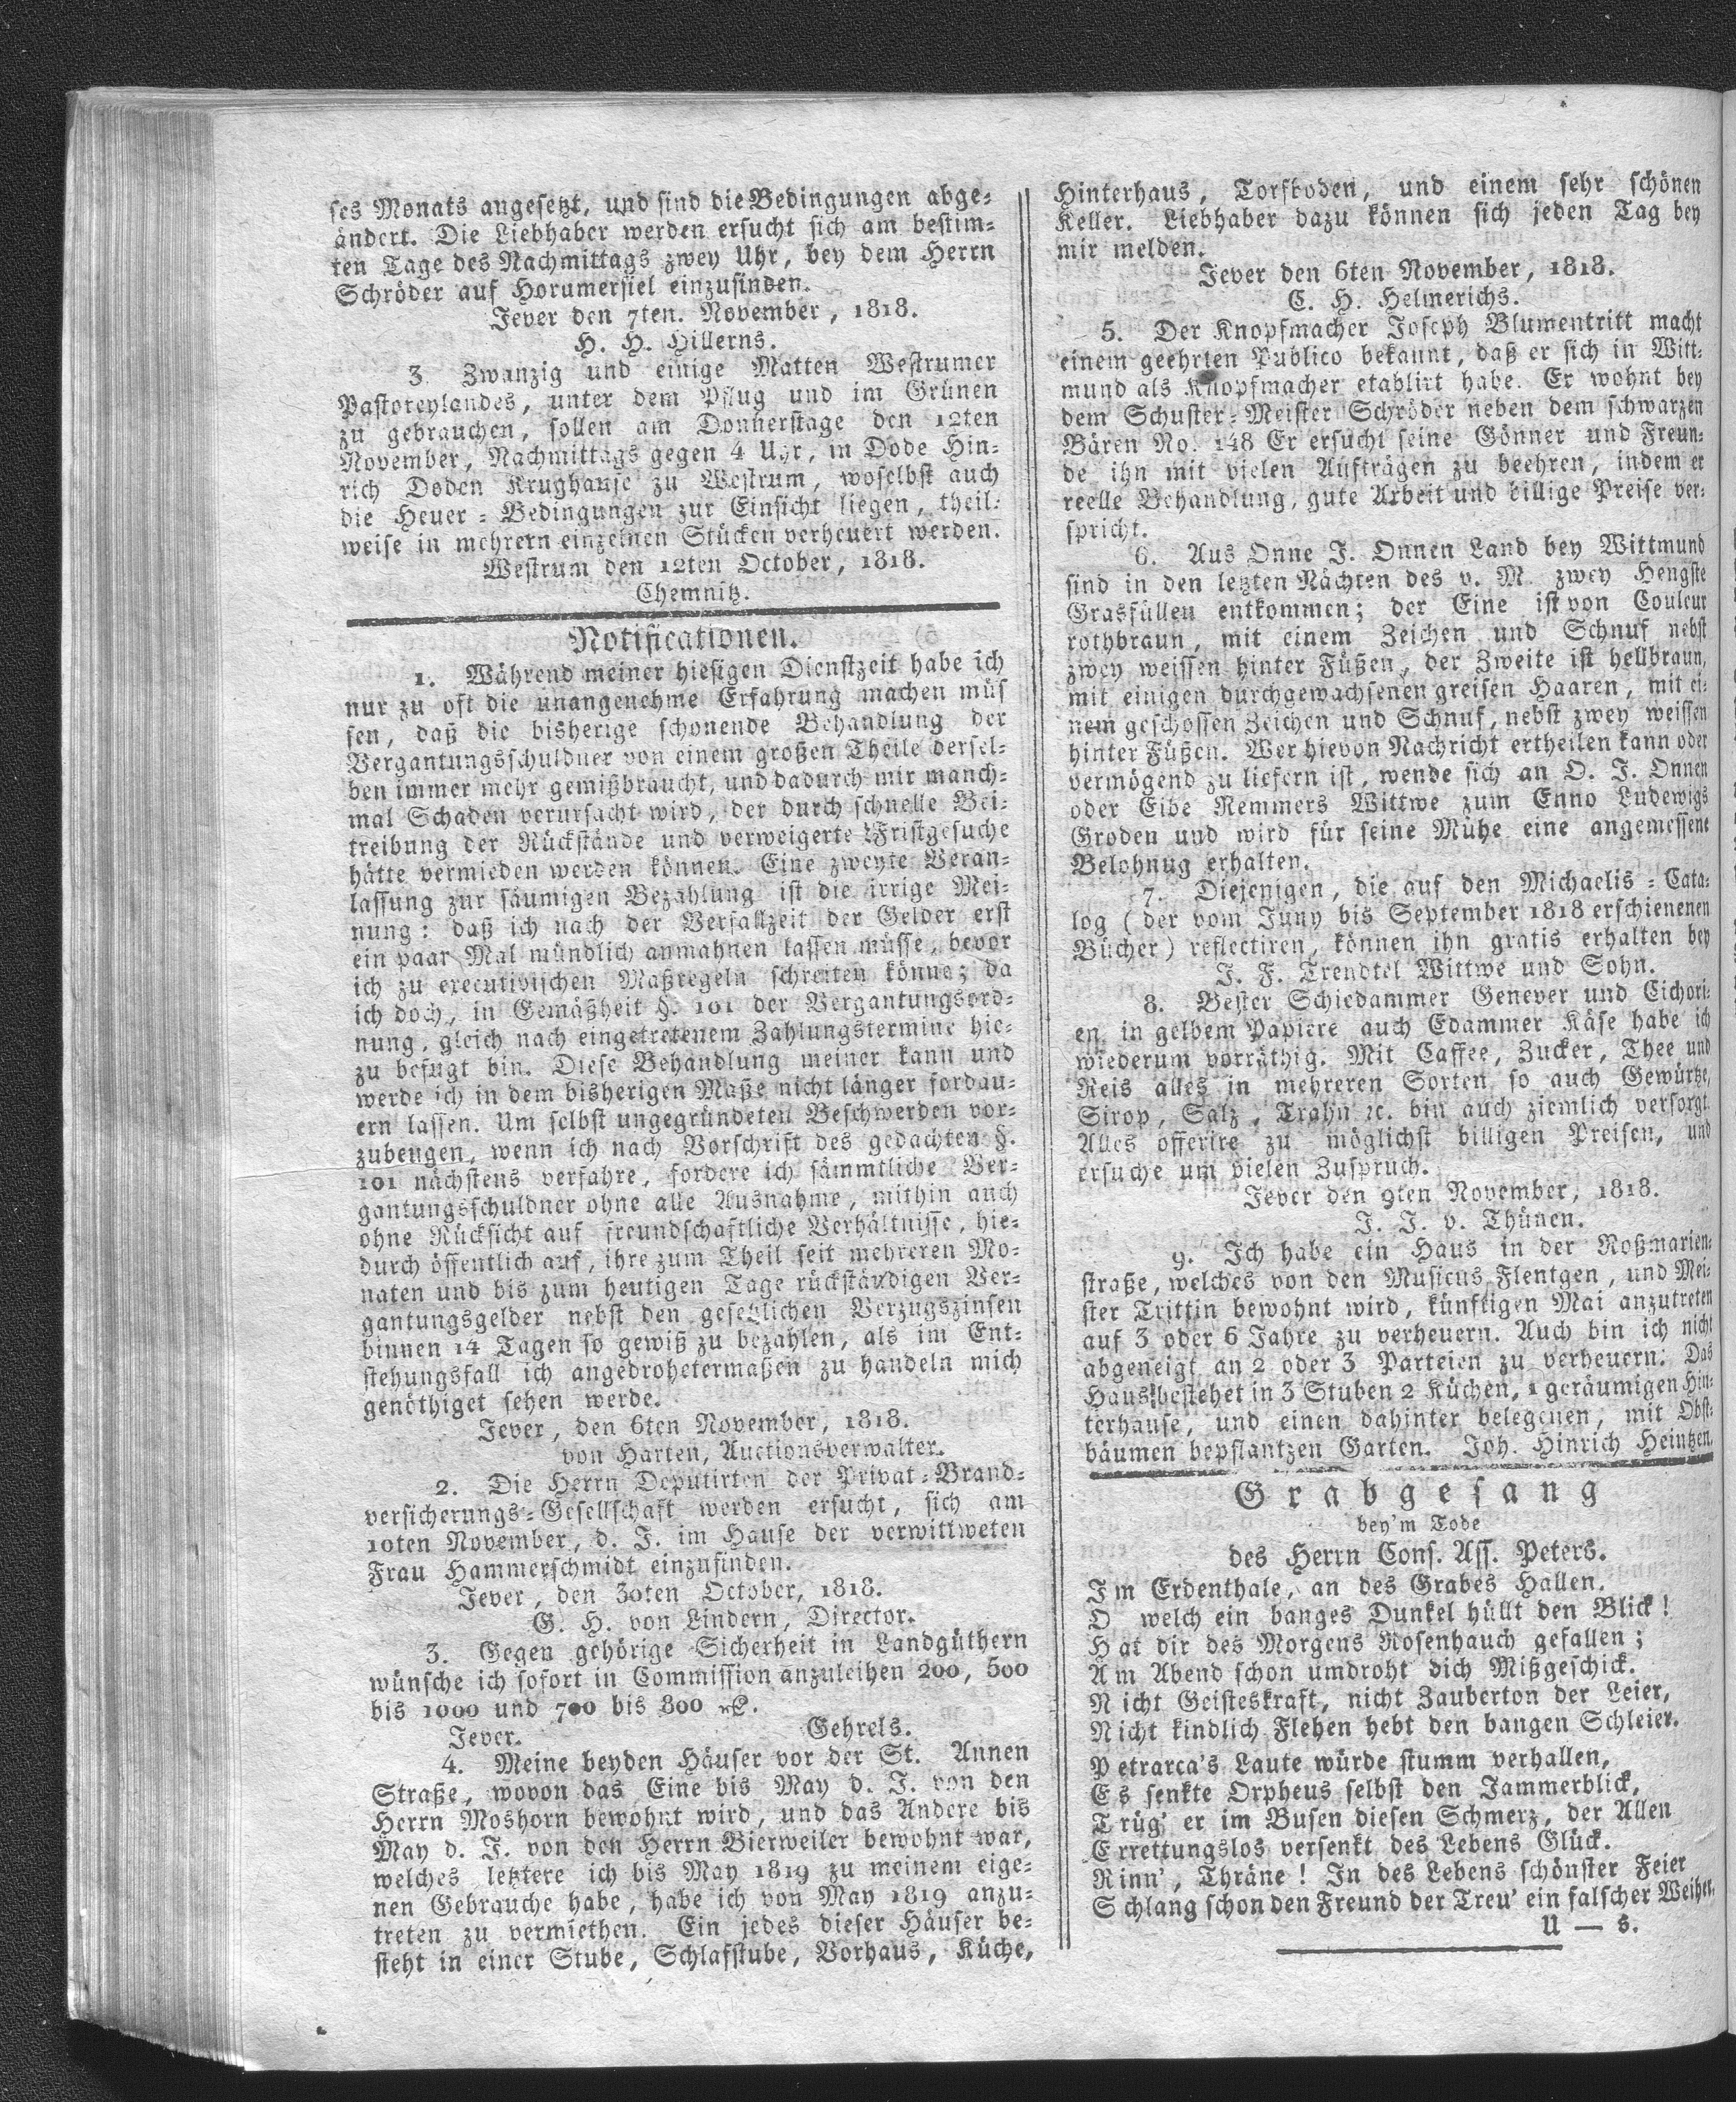 ses Monats angesetzt, und sind die Bedingungen abge-
ändert. Die Liebhaber werden ersucht sich am bestim-
ten Tage des Nachmittags zwey Uhr, bey dem Herrn
Schröder auf Horumersiel einzufinden.
Jever den 7ten. November, 1818.
H. H. Hillerns.
3 Zwanzig und einige Matten Westrumer
Pastoreylandes, unter dem Pflug und im Grünen
zu gebrauchen, sollen am Donnerstage den 12ten
November, Nachmittags gegen 4 Uhr, in Dode Hin-
rich Doden Krughause zu Westrum, woselbst auch
die Heuer-Bedingungen zur Einsicht liegen, theil-
weise in mehrern einzelnen Stücken verheuert werden.
Westrum den 12ten October, 1818.
Chemnitz.
Notificationen.
1. Während meiner hiesigen Dienstzeit habe ich
nur zu oft die unangenehme Erfahrung machen müs
sen, daß die bisherige schonende Behandlung der
Vergantungsschuldner von einem großen Theile dersel-
ben immer mehr gemißbraucht, und dadurch mir manch-
mal Schaden verursacht wird, der durch schnelle Bei-
treibung der Rückstände und verweigerte Fristgesuche
hätte vermieden werden können. Eine zweyte Veran-
lassung zur säumigen Bezahlung ist die irrige Mei-
nung: daß ich nach der Verfallzeit der Gelder erst
ein paar Mal mündlich anmahnen lassen müsse, bevor
ich zu executivischen Maßregeln schreiten könne; da
ich doch, in Gemäßheit §. 101 der Vergantungsord-
nung, gleich nach eingetretenem Zahlungstermine hie-
zu befugt bin. Diese Behandlung meiner kann und
werde ich in dem bisherigen Maße nicht länger fordau-
ern lassen. Um selbst ungegründeten Beschwerden vor-
zubeugen, wenn ich nach Vorschrift des gedachten §.
101 nächstens verfahre, fordere ich sämmtliche Ver-
gantungsschuldner ohne alle Ausnahme, mithin auch
ohne Rücksicht auf freundschaftliche Verhältnisse, hie-
durch öffentlich auf, ihre zum Theil seit mehreren Mo-
naten und bis zum heutigen Tage rückständigen Ver-
gantungsgelder nebst den gesetzlichen Verzugszinsen
binnen 14 Tagen so gewiß zu bezahlen, als im Ent-
stehungsfall ich angedrohetermaßen zu handeln mich
genöthiget sehen werde.
Jever, den 6ten November, 1818.
von Harten, Auctionsverwalter.
2. Die Herrn Deputirten der Privat-Brand-
versicherungs-Gesellschaft werden ersucht, sich am
10ten November, d. J. im Hause der verwittweten
Frau Hammerschmidt einzufinden.
Jever, den 30ten October, 1818.
G. H. von Lindern, Director.
3. Gegen gehörige Sicherheit in Landgüthern
wünsche ich sofort in Commission anzuleihen 200, 500
bis 1000 und 700 bis 800
Jever. Gehrels.
4. Meine beyden Häuser vor der St. Annen
Straße, wovon das Eine bis May d. J. von den
Herrn Moshorn bewohnt wird, und das Andere bis
May d. J. von den Herrn Bierweiler bewohnt war,
welches letztere ich bis May 1819 zu meinem eige-
nen Gebrauche habe, habe ich von May 1819 anzu-
treten zu vermiethen. Ein jedes dieser Häuser be-
steht in einer Stube, Schlafstube, Vorhaus, Küche,
Hinterhaus, Torfboden, und einem sehr schönen
Keller. Liebhaber dazu können sich jeden Tag bey
mir melden.
Jever den 6ten November, 1818.
C. H. Helmerichs.
5. Der Knopfmacher Joseph Blumentritt macht
einem geehrten Publico bekannt, daß er sich in Witt-
mund als Knopfmacher etablirt habe. Er wohnt bey
dem Schuster-Meister Schröder neben dem schwarzen
Bären No. 148 Er ersucht seine Gönner und Freun-
de ihn mit vielen Aufträgen zu beehren, indem er
reelle Behandlung, gute Arbeit und billige Preise ver-
spricht.
6. Aus Onne J. Onnen Land bey Wittmund
sind in den letzten Nächten des v. M. zwey Hengste
Grasfüllen entkommen; der Eine ist von Couleur
rothbraun, mit einem Zeichen und Schnuf nebst
zwey weissen hinter Füßen, der Zweite ist hellbraun,
mit einigen durchgewachsenen greisen Haaren, mit ei-
nem geschossen Zeichen und Schnuf, nebst zwey weissen
hinter Füßen. Wer hievon Nachricht ertheilen kann oder
vermögend zu liefern ist, wende sich an O. J. Onnen
oder Eibe Remmers Wittwe zum Enno Ludewigs
Groden und wird für seine Mühe eine angemessene
Belohnug erhalten.
7. Diejenigen, die auf den Michaelis-Cata-
log (der vom Juny bis September 1818 erschienenen
Bücher) reflectiren, können ihn gratis erhalten bey
J. F. Trendtel Wittwe und Sohn.
8. Bester Schiedammer Genever und Cichori-
en in gelbem Papiere auch Edammer Käse habe ich
wiederum vorräthig. Mit Caffee, Zucker, Thee und
Reis alles in mehreren Sorten so auch Gewürtze,
Sirop, Salz, Trahn ꝛc. bin auch ziemlich versorgt.
Alles offerire zu möglichst billigen Preisen, und
ersuche um vielen Zuspruch.
Jever den 9ten November, 1818.
J. J. v. Thünen.
9. Ich habe ein Haus in der Roßmarien-
straße, welches von den Musicus Flentgen, und Mei-
ster Trittin bewohnt wird, künftigen Mai anzutreten
auf 3 oder 6 Jahre zu verheuern. Auch bin ich nicht
abgeneigt an 2 oder 3 Parteien zu verheuern. Das
Haus bestehet in 3 Stuben 2 Küchen, 1 geräumigen Hin-
terhause, und einen dahinter belegenen, mit Obst-
bäumen bepflantzen Garten. Joh. Hinrich Heintzen.
Grabgesang
bey'm Tode
des Herrn Cons. Ass. Peters.
Im Erdenthale, an des Grabes Hallen.
O welch ein banges Dunkel hüllt den Blick!
Hat dir des Morgens Rosenhauch gefallen;
Am Abend schon umdroht dich Mißgeschick.
Nicht Geisteskraft, nicht Zauberton der Leier,
Nicht kindlich Flehen hebt den bangen Schleier.
Petrarca's Laute würde stumm verhallen,
Es senkte Orpheus selbst den Jammerblick,
Trüg' er im Busen diesen Schmerz, der Allen
Errettungslos versenkt des Lebens Glück.
Rinn', Thräne! In des Lebens schönster Feier
Schlang schon den Freund der Treu' ein falscher Weiher.
U — s.